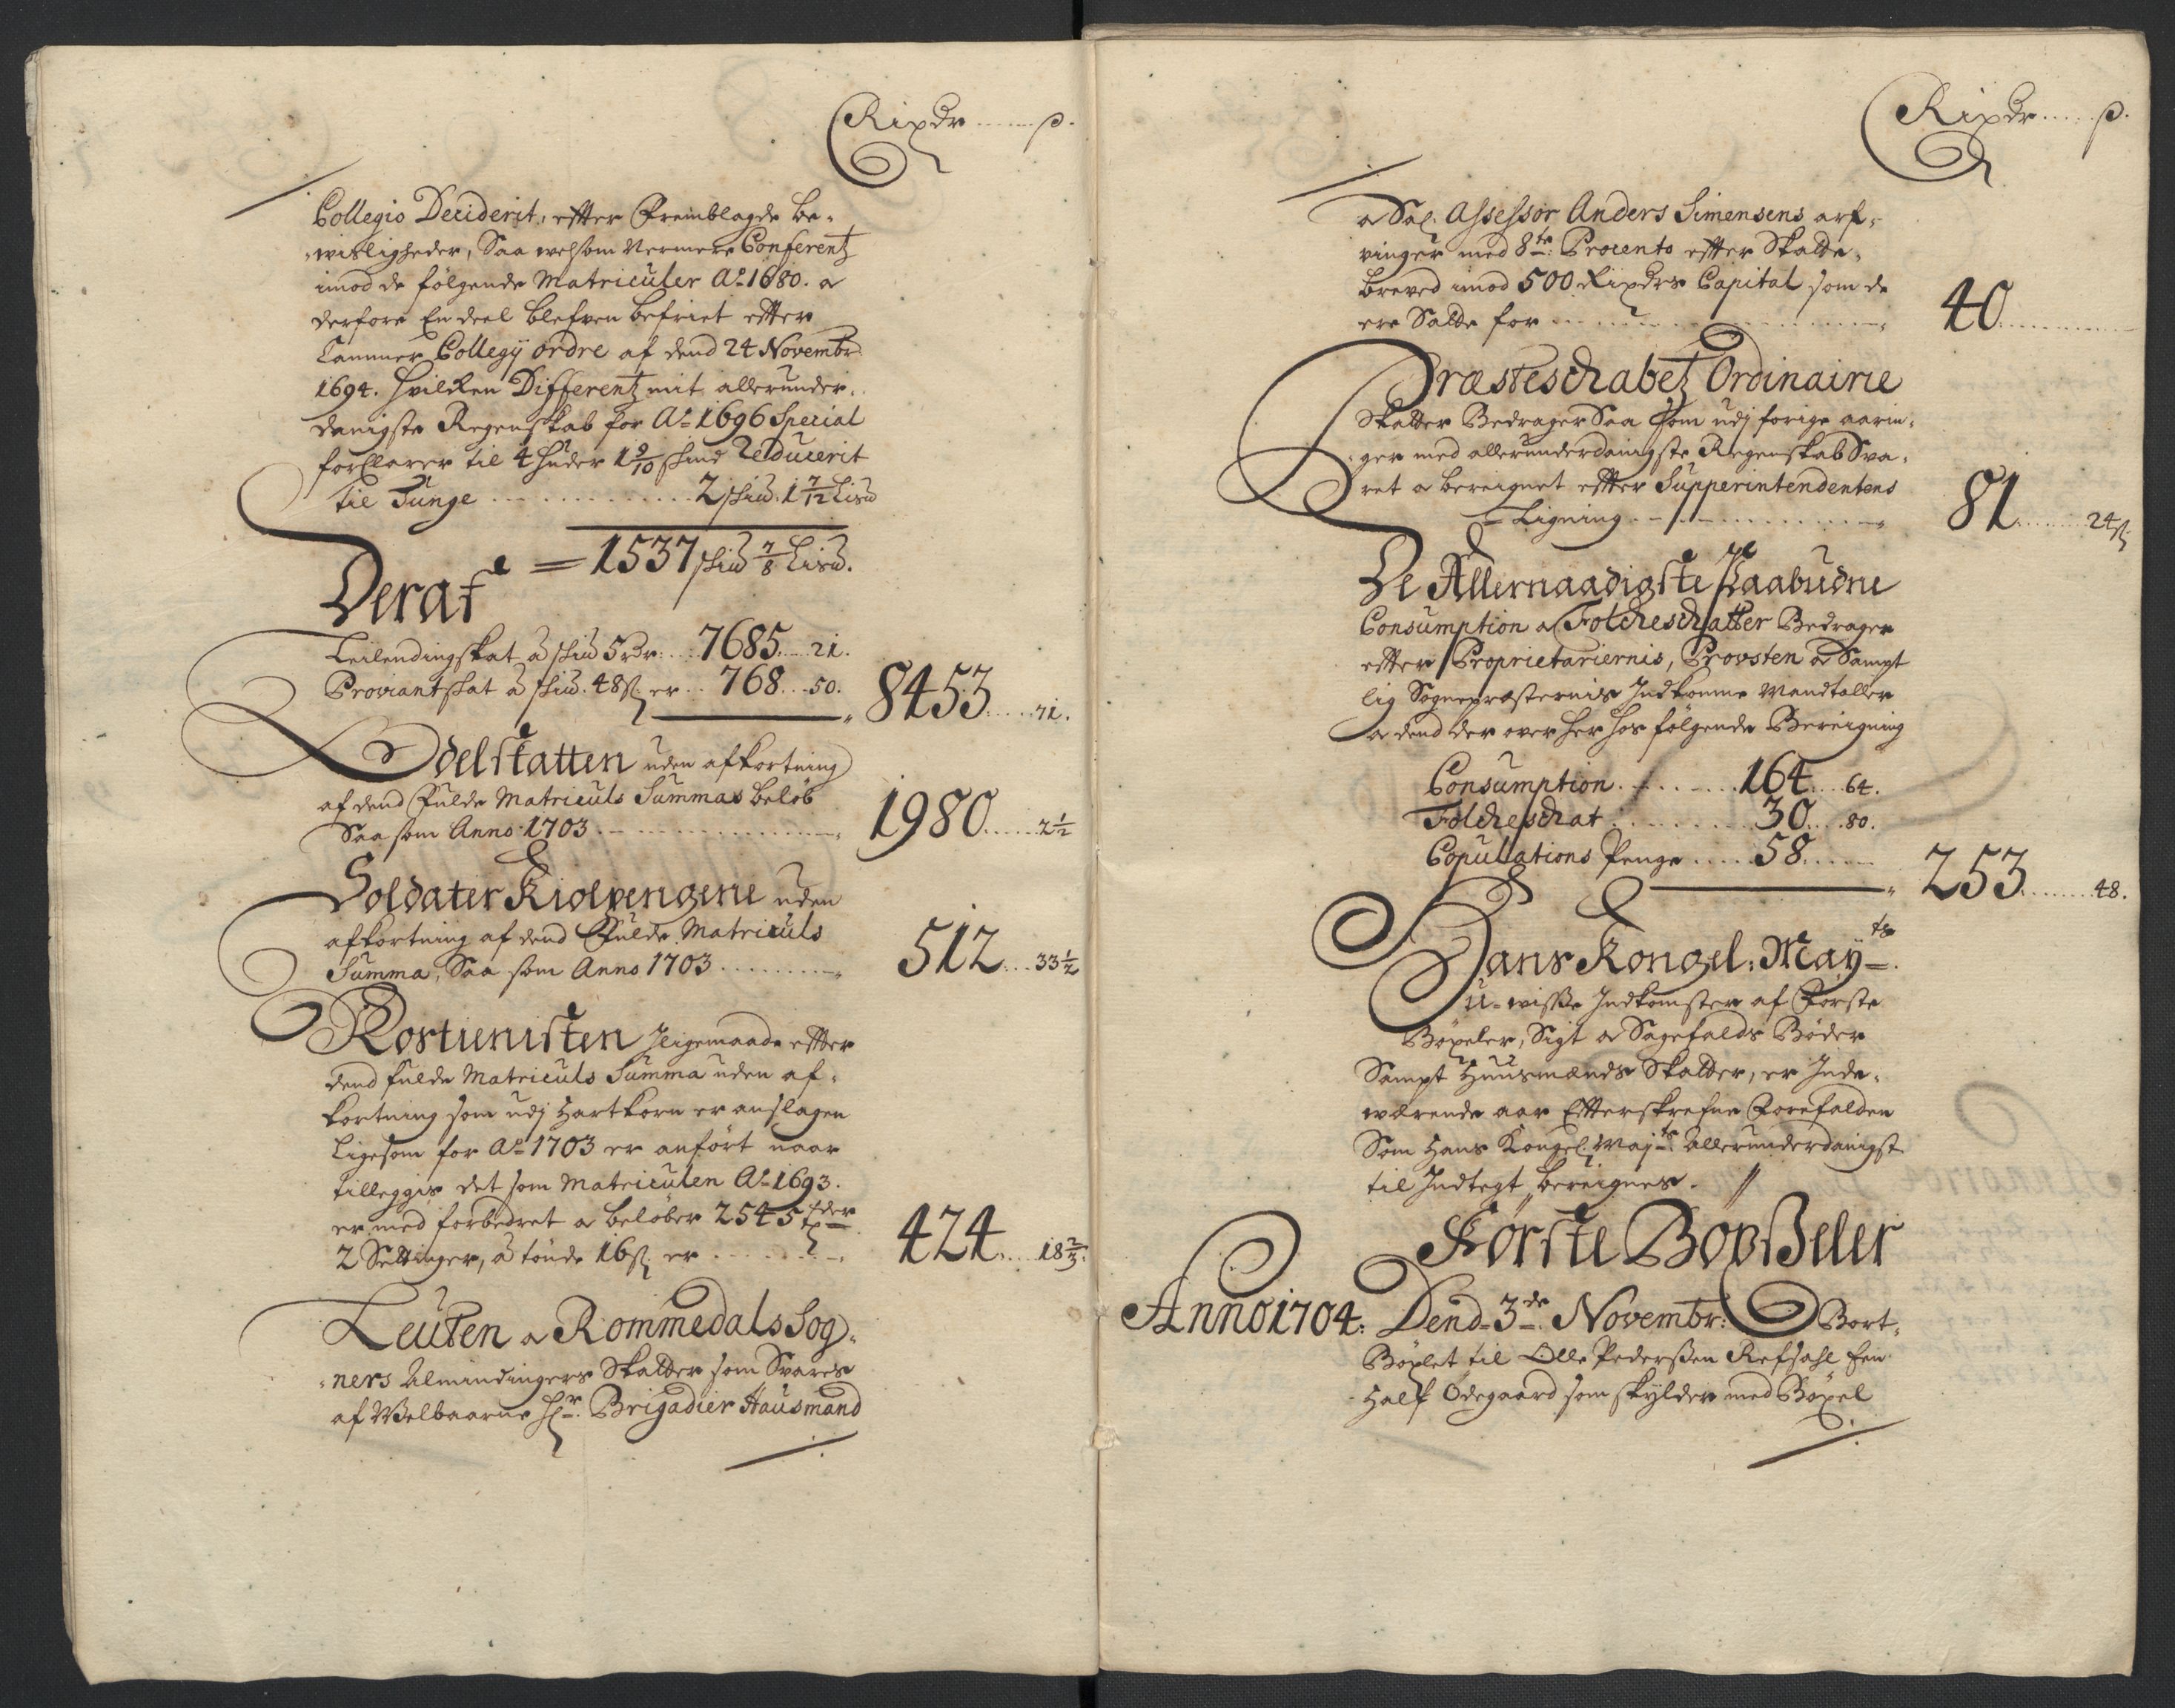 Rixdr ...... s.
Collegio Deciderit, effter Fremblagde be-
wisligheder, Saa welsom Nermere Conferentz
imod de følgende Matriculer Ao 1680. a
derfore En deel blefven befriet effter
Cammer Collegij ordre af dend 24 Novembr.
1694. Hvilcken Differentz mit allerunder-
danigste Regenskab for Ao 1696 Special
forklarer til 4 huder 1 9/10 skind Reducerit
til Tunge ............ 2 skiu. 1 7/12 Lisu
= 1537 skiu 7/8 Lisu.
Deraf
Leilendingskat â skiu 5 rdr .... 7685 .... 21.
Proviantskat â skiu. 48 s. er ... 768 ... 50. 8453 .... 71.
Odelskatten uden afkortning
af dend Fulde Matriculs Summas beløb
Saa som Anno 1703 ............ 1980 ..... 2 1/2
Soldater Kiolpengene uden
afkortning af dend Fulde Matriculs
Summa, Saa som Anno 1703 ........ 512 ... 33 1/2
Rostienisten Jligemaade effter
dend fulde Matriculs Summa uden af-
kortning som udj Hartkorn er anslagen
Ligesom for Ao 1703 er anført naar
tilleggis det som Matriculen Ao 1693.
er med forbedret a beløber 2545 tder
2 Settinger, â tønde 16 s. er ........ 424 .... 18 2/3.
Leuten a Rommedals Sog-
ners Almindingers Skatter som Svares
af Welbaarne Hr. Brigadier Hausmand
Rixdr ..... s.
a Sal. Assessor Anders Simensens arf-
vinger med 8te Procento effter Skatte-
breved imod 500 Rixdrs Capital som de
ere Satte for ............ 40 ............
Præsteschabetz Ordinairie
Skatter Bedrager Saa Som udj forige aarin-
ger med allerunderdanigste Regenskab Sva-
ret a bereignet effter Supperintendentens
Ligning ............ 81 ........ 24 s.
De Allernaadigste Paabudne
Consumption a Folcheschatter Bedrager
effter Proprietariernis, Provsten a Sampt
lig Sognepræsternis Indkomne Mandtaller
a dend der over her hos følgende Bereigning
Consumption ........ 164 ... 64.
Folcheschat ........ 30 ... 80.
Copulations Penge ..... 58 ..... 253 ........ 48.
Hans Kongel: Mayts
u-wisse Indkomster af Første
Bøxeler, Sigt a Sagefalds Bøder
Sampt Huusmænds Skatter, er Inde-
wærende aar Effterskrefne Forefalden
Som Hans Kongel. Majts Allerunderdanigst
til Indtegt bereignes.
Første Bøxseler
Anno 1704. Dend 3de Novembr: Bort-
Bøxlet til Olle Pederssen Refsahl Een
Half Ødegaard som skylder med Bøxel